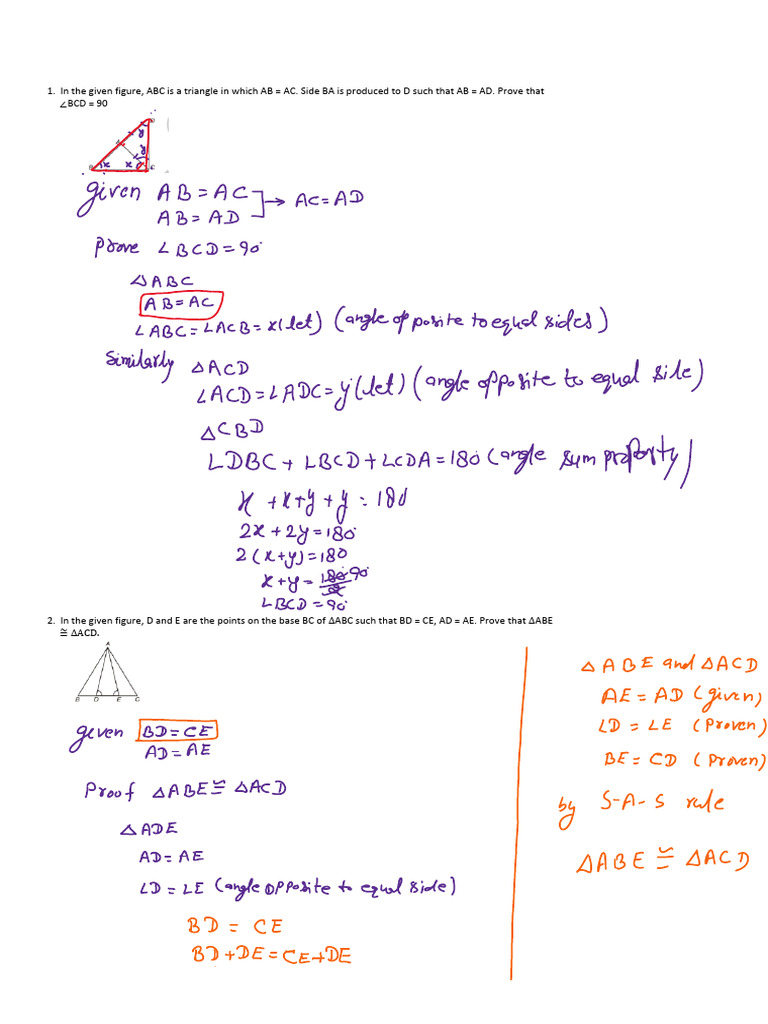 1. In the given figure, ABC is a triangle in which AB = AC. Side BA is produced to D such that AB = AD. Prove that
∠BCD = 90
y
y
x x y
given AB = AC
AB = AD → AC = AD
Prove ∠BCD = 90°
△ABC
AB = AC
∠ABC = ∠ACB = x(let) (angle opposite to equal sides)
Similarly △ACD
∠ACD = ∠ADC = y(let) (angle opposite to equal side)
△CBD
∠DBC + ∠BCD + ∠CDA = 180 (angle sum property)
x + x + y + y = 180
2x + 2y = 180°
2(x+y) = 180
x + y = 180 90
2
∠BCD = 90°
2. In the given figure, D and E are the points on the base BC of ΔABC such that BD = CE, AD = AE. Prove that ΔABE
≅ ΔACD.
A
B D E C
given BD = CE
AD = AE
Proof △ABE ≅ △ACD
△ADE
AD = AE
∠D = ∠E (angle opposite to equal side)
BD = CE
BD + DE = CE + DE
△ABE and △ACD
AE = AD (given)
∠D = ∠E (Proven)
BE = CD (Proven)
by S-A-S rule
△ABE ≅ △ACD